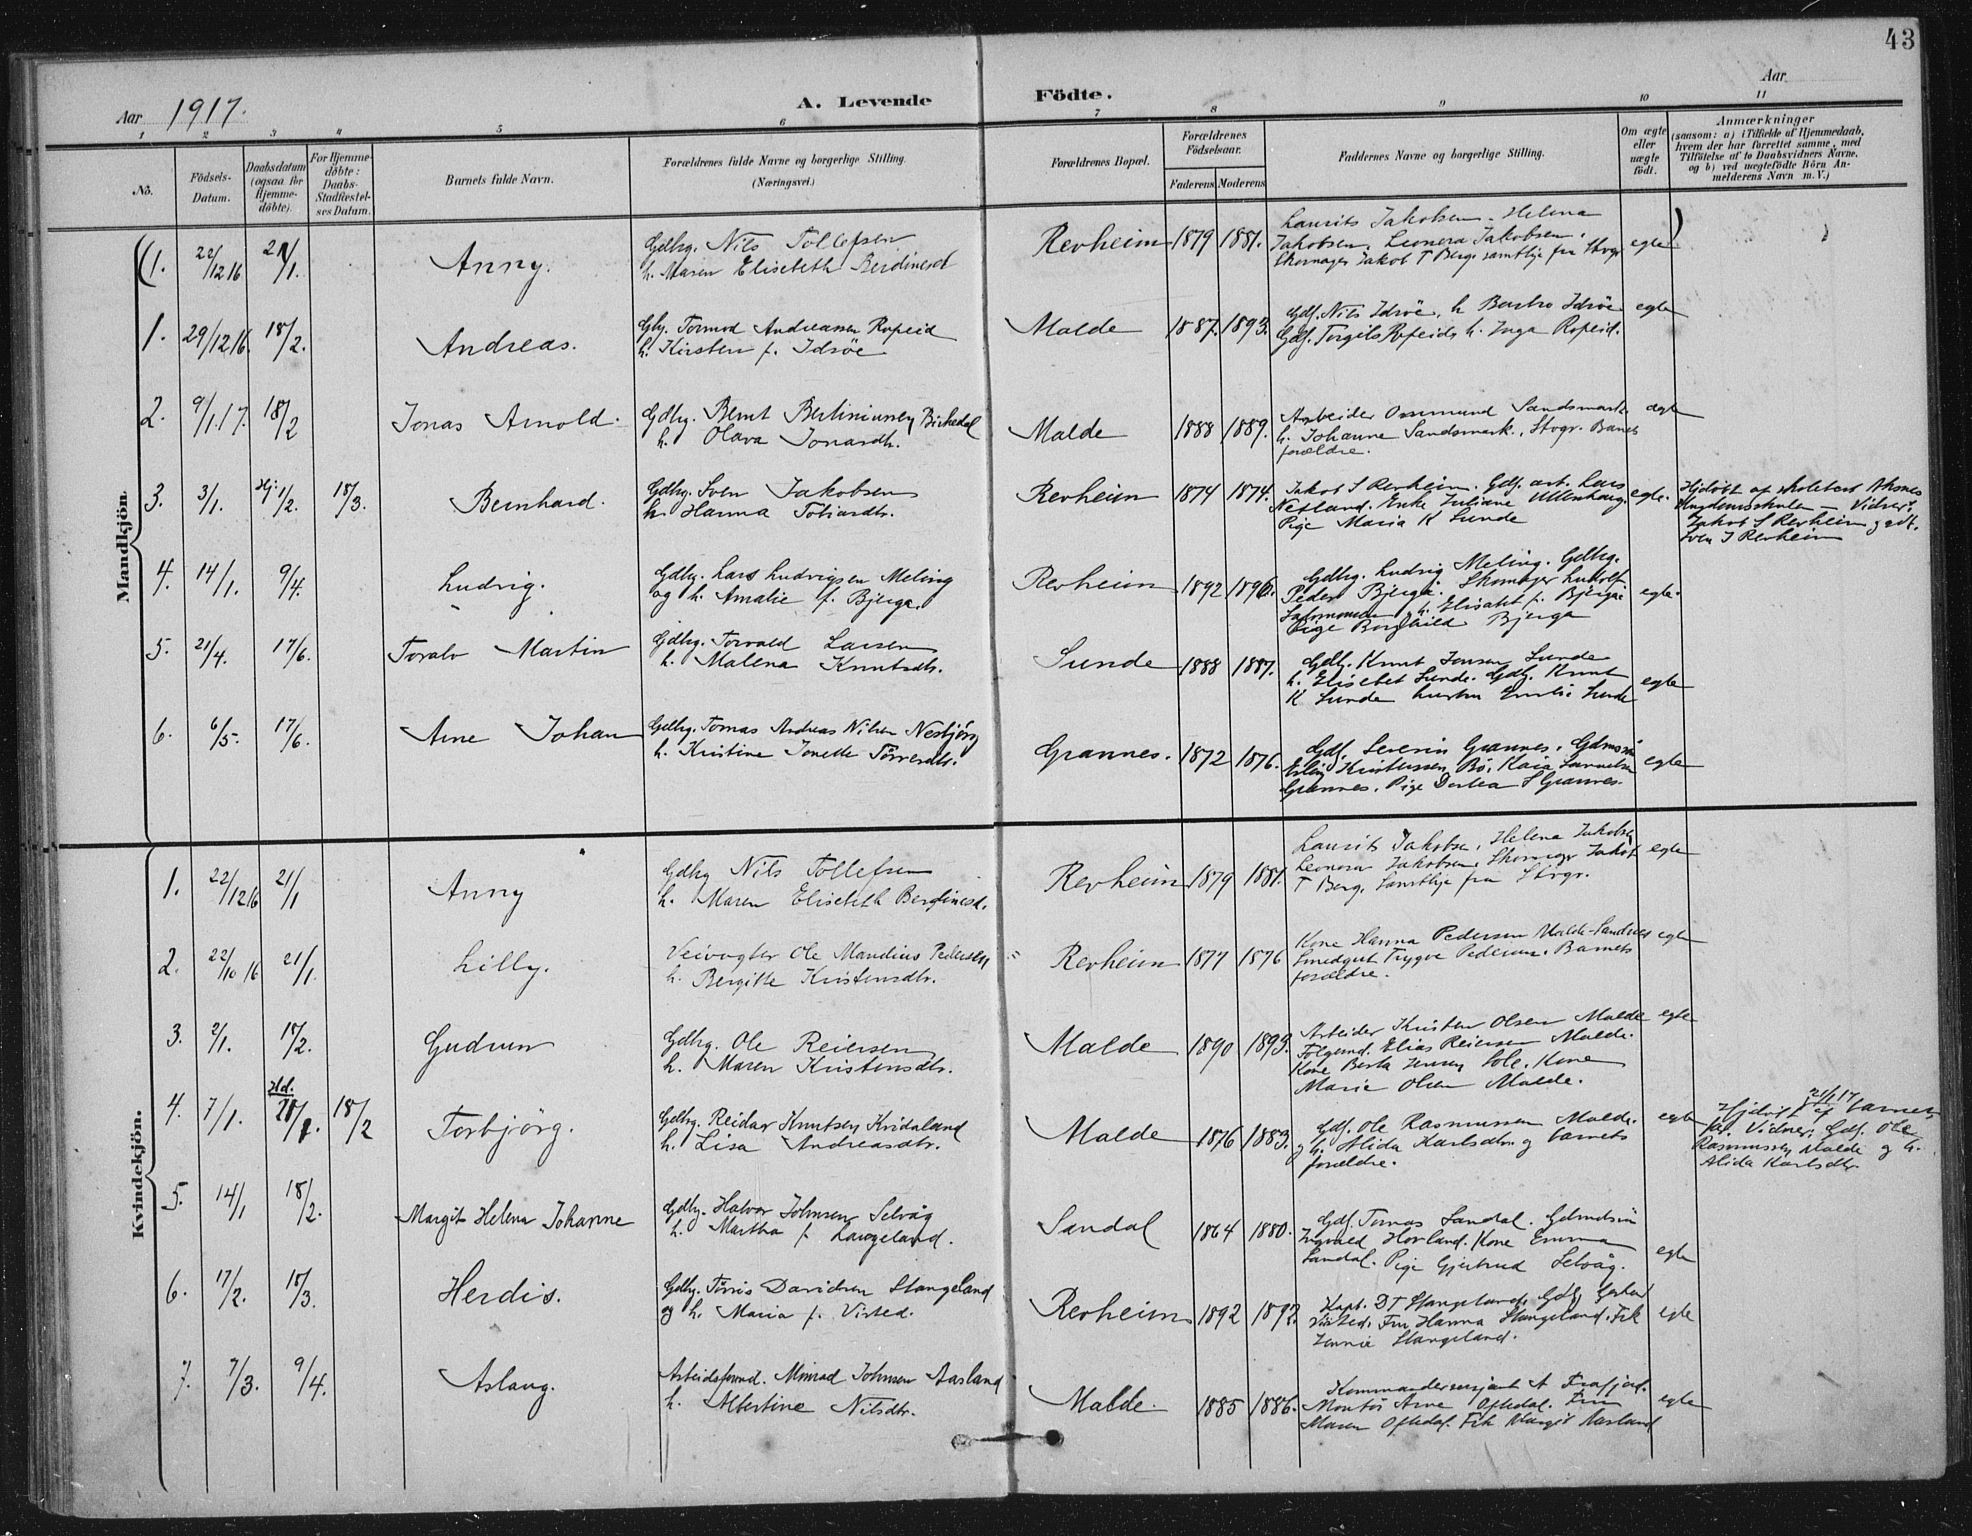 43
Aar 1917.
A. Levende Födte.
Aar
1 2 3 4 5 6 7 8 9 10 11
No.
Födsels-Datum.
Daabsdatum (ogsaa for Hjemme-döbte).
For Hjemme-döbte: Daabs-Stadfæstel-ses Datum.
Barnets fulde Navn.
Forældrenes fulde Navne og borgerlige Stilling.
(Næringsvei.)
Forældrenes Bopæl.
Forældrenes Födselsaar.
Faderens Moderens
Faddernes Navne og borgerlige Stilling.
Om ægte eller uægte födt.
Anmærkninger
(saasom: a) i Tilfælde af Hjemmedaab,
hvem der har forrettet samme, med
Tilföielse af to Daabsvidners Navne,
og b) ved uægtefödte Börn An-
melderens Navn m. V.)
Mandkjön.
(1. 22/12 16 21/1. Anny. Gdbrg. Nils Tollefsen
h. Maren Elisebeth Berdinesd
Revheim 1879 1881. Laurits Jakobsen. Helena
Jakobsen. Leonora Jakobsen.
Skomager Jakob T Berg. samtlige fra Stvgr egte)
1. 29/12 16. 18/2. Andreas. Gbg. Tormod Andreassen Ropeid
h. Kirsten f. Idsöe
Malde 1887. 1893. Gdf. Nils Idsöe, h Bertha Idsöe egte
Gdf. Torgils Ropeid, h. Inga Ropeid.
2. 9/1.17. 18/2 Jonas Arnold. Gdbrg. Bernt Bertiniussen Birkedal
h. Olava Jonasdtr.
Malde 1888 1889. Arbeider Osmund Sandsmark ægte
h. Johanne Sandsmark, Stvgr. Barnets
forældre.
3. 3/1. Hj: 1/2. 18/3. Bernhard. Gdbrg. Sven Jakobsen
h. Hanna Tobiasdtr.
Revheim 1874 1874. Jakob S Revheim. Gdf. art. Lars
Nefland. Enke Juliane Ullenhaug. egte.
Pige Maria K Sunde
Hjdöbt af skolebest. Aksnes
Ungdomsskolen — Vidner:
Jakob S Revheim og dt.
Sven J Revheim
4. 14/1. 9/4. Ludvig. Gdbrg. Lars Ludvigsen Meling
og h. Amalie f. Bjerga.
Revheim 1892 1896. Gdbrg. Ludvig Meling. Gdbrg.
Peder Bjerga. Skomager Ludolf
Salomonsen og h. Elisabet f. Bjerga egte.
Pige Borghild Bjerga
5. 21/4. 17/6. Toralv Martin Gdbrg. Torvald Larsen
h. Malena Knutsdtr.
Sunde 1888 1887. Gdbg. Knut Jensen Sunde
h. Elisebet Sunde. Gdbg. Knut
K Sunde hustru Emilie Sunde egte
6. 6/5. 17/6. Arne Johan Gdbrg. Tomas Andreas Nilsen Nesbjörg
h. Kristine Jonette Törresdtr.
Grannes. 1872 1876. Gdf. Severin Grannes. Gdmssön
Erling Kristiansen Bö. Kaia Samuelsen
Grannes. Pige Dortea S Grannes. egte
Kvindekjön.
1. 22/12 16 21/1 Anny Gdbrg Nils Tollefsen
h. Maren Elisebeth Berdinesd.
Revheim 1879 1881. Laurits Jakobsen, Helena Jakobsen
Leonora Jakobsen. Skomager Jakob
T Berg, samtlige fra Stvgr. egte
2. 22/10 16 21/1. Lilly. Veivogter Ole Mandius Pedersen
h. Bergitte Kristensdtr.
Revheim 1877 1876 Kone Hanna Pedersen Malde-Sandnes egte
Smedgut Trygve Pedersen. Barnets
forældre.
3. 2/1. 18/2. Gudrun Gdbrg. Ole Reiersen
h. Maren Kristensdtr.
Malde 1890 1893. Arbeider Kristen Olsen Malde egte
Folgemd. Elias Reiersen Malde.
Kone Berta Jensen Sole. Kone
Marie Olsen Malde.
4. 7/1. Hd. 18/2 Torbjörg. Gdbrg. Reidar Knutsen Kvidaland
h. Lisa Andreasdtr.
Malde 1876 1883. Gdf. Ole Rasmussen Malde. egte
og h. Alida Karlsdtr. og barnets
forældre.
Hjdöbt af barnets
far. Vidner: Gdf. Ole
Rasmussen Malde og h.
Alida Karlsdtr
5. 14/1 18/2. Margit Helena Johanne Gdbrg. Halvor Johnsen Selvåg
h. Martha f. Laugeland.
Sandal 1864 1880. Gdf. Tomas Sandal. Gdmdssön
Ingvald Hovland. Kone Emma
Sandal. Pige Gjertrud Selvåg. egte
6. 17/2. 18/3. Herdis. Gdbrg. Törris Davidsen Stangeland
og h. Maria f. Visted.
Revheim 1892 1892. Kapt. D T Stangeland. Gdbg
Visted. Fru Hanna Stangeland. Frk egte
Jennie Stangeland.
7. 7/3. 9/4. Aslaug. Arbeidsformd. Minrad Johnsen Aasland
h. Albertine Nilsdtr.
Malde. 1885 1886. Kommandersersjant A Frafjord.
Montör Arne Oftedal. Fru
Maren Oftedal. Frk Margit Aasland egte